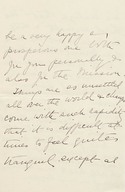 be a very happy and
prosperous one both
for you personally &
also for the Mission.
Things are so unsettled
all over the world & things
come with such rapidity
that it is difficult at
times to feel quite
tranquil except at